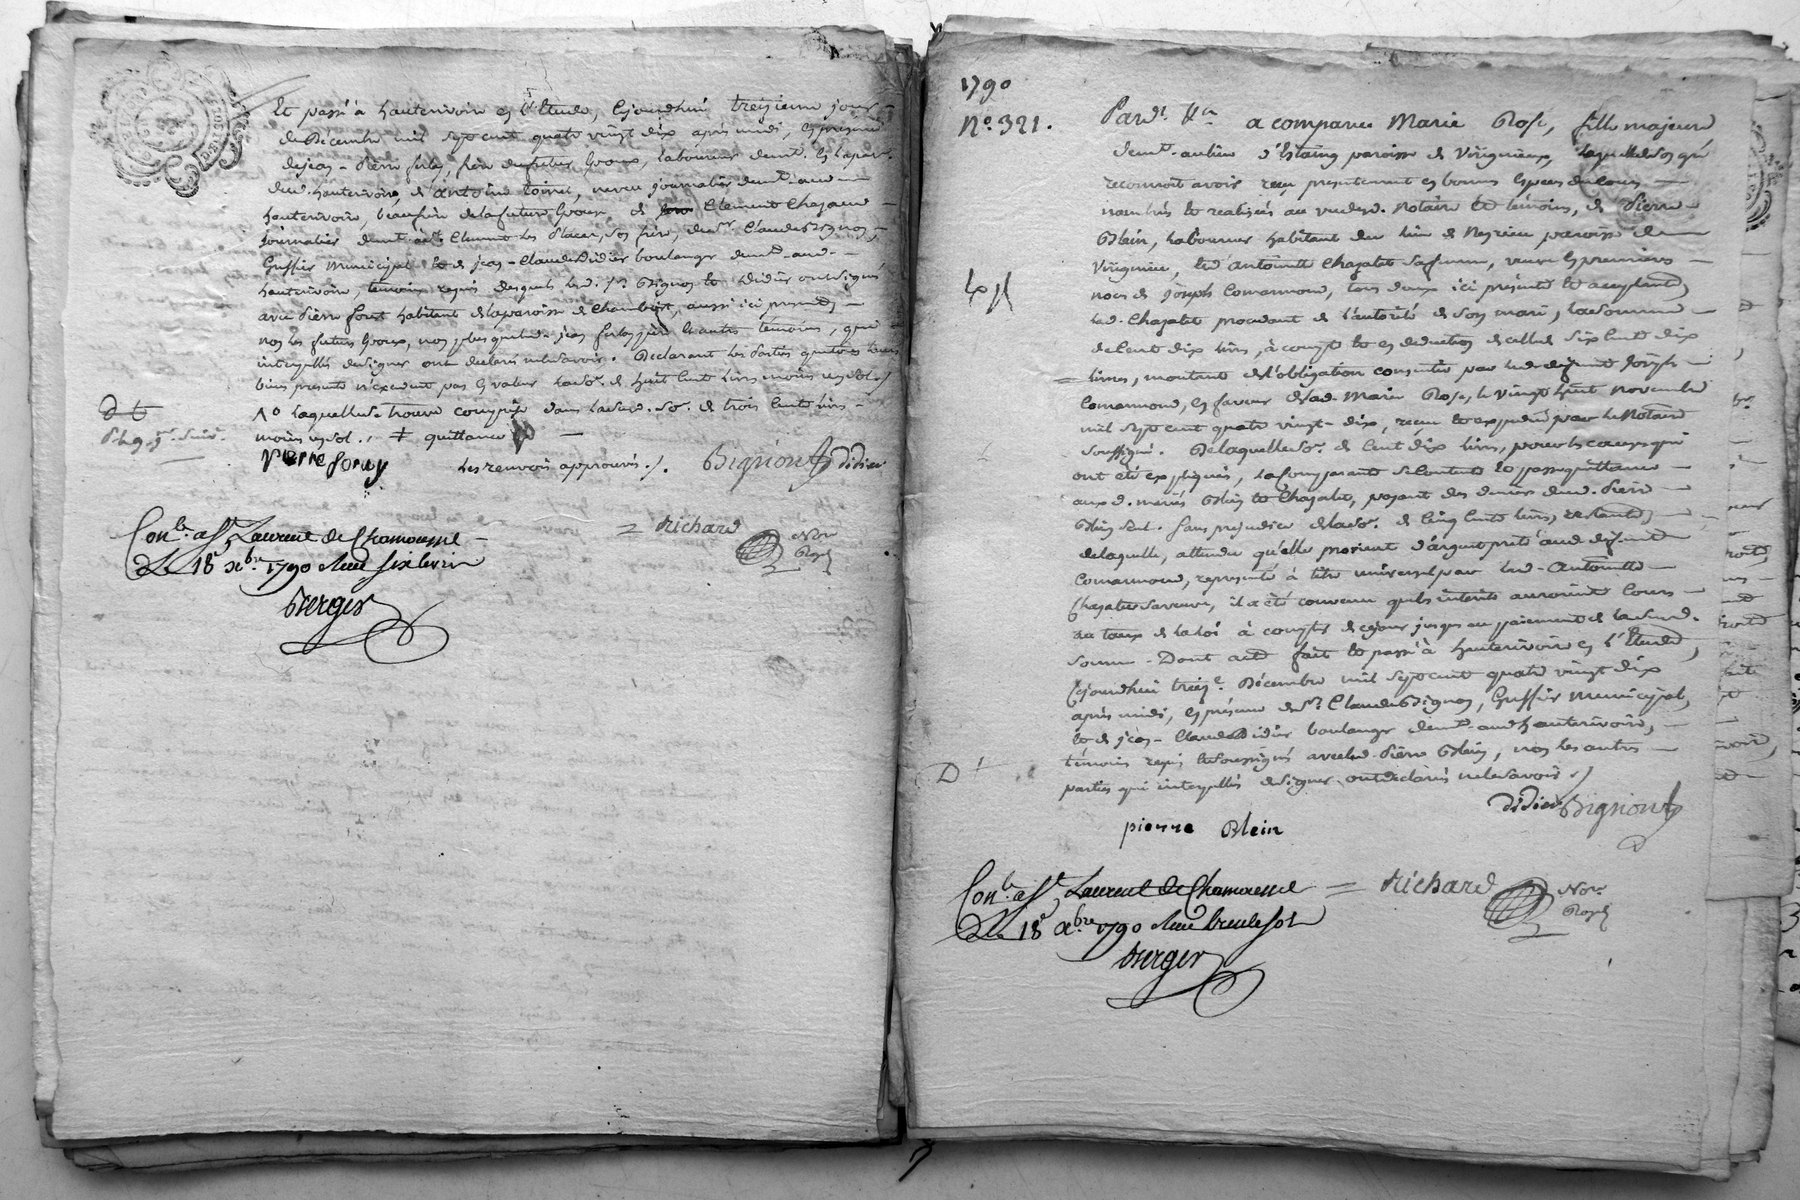 Et passé à hauterivoire en l'Etude, Cejourdhui treizieme jour
de Décembre mil sept cent quatre vingt dix après midi, en présence
de jean-Pierre
dud. hauterivoire, d'antoine neveu journalier demt. aud.
hauterivoire, beaufrère de la future Epouse, de Clement Chazaud
Journalier demt. à St. Clement les Places, son frère, de sr. Claude Bignon,
Greffier Municipal et de jean-Claude Didier boulanger demt. aud.
hauterivoire, temoins requis desquels led. sr. Bignon et Didier ont signé
avec Pierre habitant de la paroisse de Chambost, aussi ici présent,
non les futurs Epoux, non plus que led. jean père et autres témoins, que
interpellés de signer ont déclaré ne le savoir. Declarant les Parties que tous leurs
biens présents n'excedent pas en valeur la so. de huit cent livres moins un sol ./
1° laquelle se trouve comprise dans lad. so. de trois cents livres
moins un sol. ‡ quittance
Les renvois approuvés ./. Bignon Didier
= Richard Nore
Royl
Conlé. à St. Laurent de Chamousset
Le 18 xbre 1790 Reçu six livres
Berger
1790
N° 321.
Pardt. Nre a comparu Marie Rose, fille majeure
demt. au lieu d'Estaing paroisse de Virignieux, laquelle de son gré
reconnoit avoir reçu présentement en bonnes Espèces de cours
nombrés et realisés au vu dud. Notaire et témoins, de Pierre
Blein, Laboureur habitant du lieu de paroisse de
Virigneux, et d'antoinette Chazalet sa femme, veuve en premieres
noces de Joseph Comarmond, tous deux ici présents et acceptants,
lad. Chazalet procedant de l'autorité de son mari, la somme
de Cent dix livres, à compte et en deduction de celle de six Cent dix
livres, montant de l'obligation consentie par led. defunt Joseph
Comarmond, en faveur de lad. Marie Rose, le vingt huit novembre
mil sept cent quatre vingt-dix, reçue et expédiée par le Notaire
soussigné. De laquelle so. de Cent dix livres, pour les causes qui
ont été expliquées, la Comparante se contente et passe quittance
aux d. mariés Blein et Chazalet, payant des deniers dud. Pierre
Blein seul. Sans préjudice de la so. de Cinq Cents livres, restante,
de laquelle, attendu qu'elle provient d'argent prêté aud. defunt
Comarmond, représenté à titre universel par lad. Antoinette
Chazalet sa veuve, il a été convenu que les intérêts auroient Cours
au taux de la loi à compter de ce jour jusqu'au paiement de lad.
Somme. Dont acte fait et passé à hauterivoire en l'Etude,
Cejourdhui treize Décembre mil sept cent quatre vingt dix
après midi, en présence de sr. Claude Bignon, Greffier Municipal,
et de jean-Claude Didier boulanger demt. aud hauterivoire,
témoins requis et soussignés avec led. Pierre Blein, non les autres
parties qui interpellés de signer ont déclaré ne le savoir ./
Didier Bignon
pierre Blein
= Richard Nore
Royl
Conlé. à St. Laurent de Chamousset
Le 18 xbre 1790 Reçu trente sols
Berger